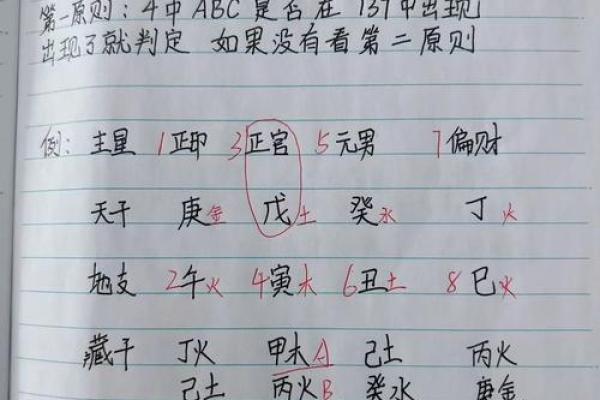 第一原则:4中ABC是否在137中出现
出现了就判定 如果没有看第二原则
例:主星 1正印 3正官 5元男 7偏财
天干 庚金 戊土 癸水 丁火
地支 2午火 4寅木 6丑土 8巳火
藏干 丁火 甲木A 己土 丙火
己土 丙火B 癸水 庚金